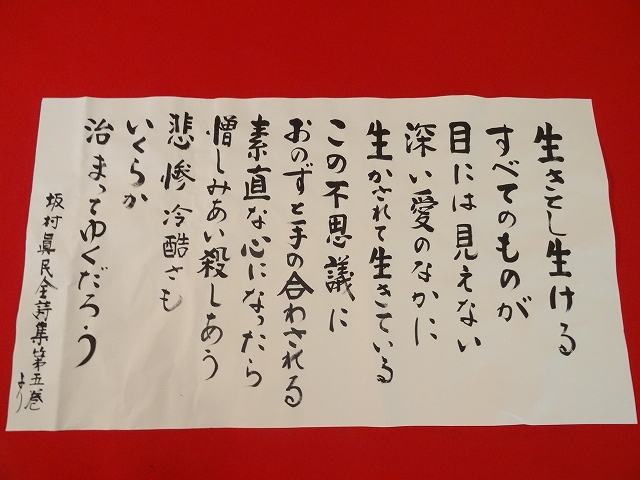 生きとし生ける
すべてのものが
目には見えない
深い愛のなかに
生かされて生きている
この不思議に
おのずと手の合わされる
素直な心になったら
憎しみあい殺しあう
悲惨冷酷さも
いくらか
治まってゆくだろう
坂村眞民全詩集第五巻
より